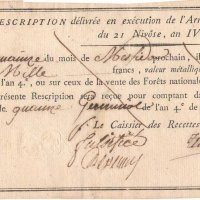 ESCRIPTION délivrée en exécution de l'Arr
du 21 Nivôse, an IV
du mois de Messidor prochain, il
Mille francs, valeur métallique
l'an 4.e, ou sur ceux de la vente des Forêts nationale
résente Rescription sera reçue pour comptant da
de quinze Germinal de l'an 4.e
Le Caissier des Recettes